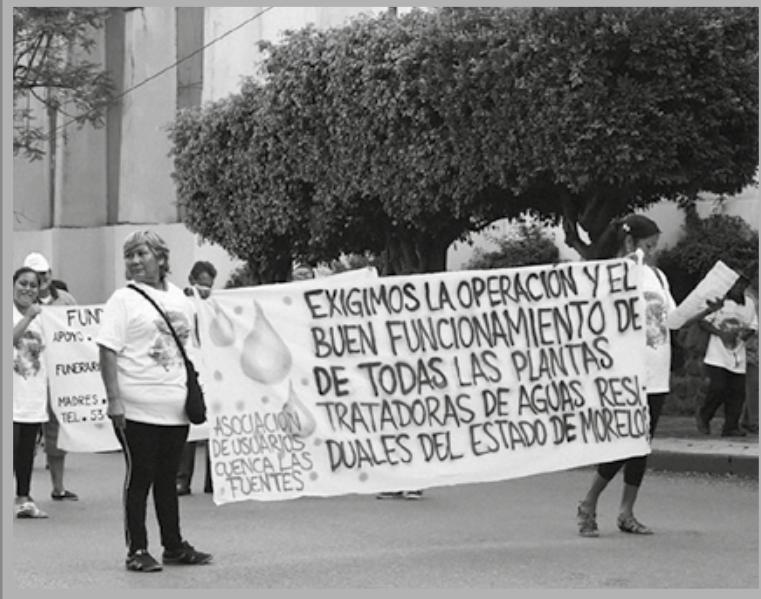 EXIGIMOS LA OPERACIÓN Y EL
BUEN FUNCIONAMIENTO DE
DE TODAS LAS PLANTAS
TRATADORAS DE AGUAS RESI-
DUALES DEL ESTADO DE MORELOS
ASOCIACIÓN
DE USUARIOS
CUENCA LAS
FUENTES
FUN
APOYO.
FUNERAR
MADRES.
TEL. 53